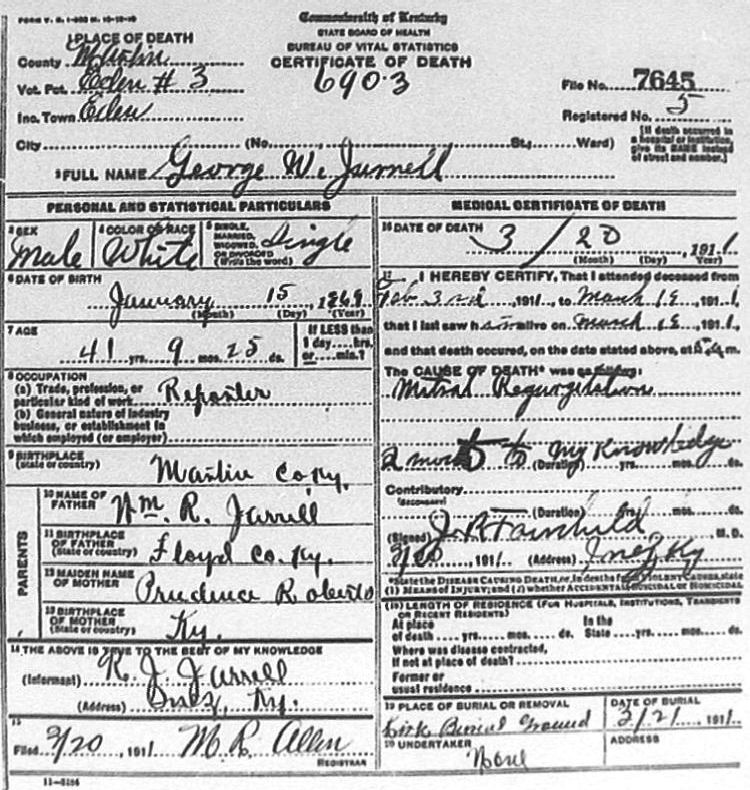 FORM V. S. 1-
Commonwealth of Kentucky
STATE BOARD OF HEALTH
BUREAU OF VITAL STATISTICS
CERTIFICATE OF DEATH
6903
1 PLACE OF DEATH
County Martin
Vot. Pct. Eden # 3
Inc. Town Eden
File No. 7645
Registered No. 5
City (No. St.; Ward)
[If death occurred in a hospital or institution, give its NAME instead of street and number.]
2 FULL NAME George W. Jurrell
PERSONAL AND STATISTICAL PARTICULARS
3 SEX Male
4 COLOR OR RACE White
5 SINGLE, MARRIED, WIDOWED, OR DIVORCED (Write the word) Single
6 DATE OF BIRTH
January 15, 1869
(Month) (Day) (Year)
7 AGE
41 yrs. 9 mos. 25 ds.
If LESS than 1 day....hrs. or....min.?
8 OCCUPATION
(a) Trade, profession, or particular kind of work
(b) General nature of industry
business, or establishment in
which employed (or employer)
9 BIRTHPLACE
(State or country) Martin Co Ky.
PARENTS
10 NAME OF FATHER Wm. R. Jarrell
11 BIRTHPLACE OF FATHER (State or country) Floyd Co. Ky.
12 MAIDEN NAME OF MOTHER Prudence Roberts
13 BIRTHPLACE OF MOTHER (State or country) Ky.
14 THE ABOVE IS TRUE TO THE BEST OF MY KNOWLEDGE
(Informant) R. J. Jarrell
(Address) Inez, Ky.
15
Filed 3/20, 1911 M. R. Allen
REGISTRAR
11-
MEDICAL CERTIFICATE OF DEATH
16 DATE OF DEATH
3 / 20, 1911
(Month) (Day) (Year)
17 I HEREBY CERTIFY, That I attended deceased from
Feb 3rd, 1911, to March 18, 1911,
that I last saw him alive on March 18, 1911,
and that death occured, on the date stated above, at m.
The CAUSE OF DEATH* was as follows:
Mitral Regurgitation
2 months to My Knowledge
(Duration) yrs. mos. ds.
Contributory
(SECONDARY)
(Duration) yrs. mos. ds.
(Signed) J. R. Fairchild M. D.
3/20, 1911 (Address) Inez Ky
*State the DISEASE CAUSING DEATH, or, in deaths from VIOLENT CAUSES, state
(1) MEANS OF INJURY; and (2) whether ACCIDENTAL, SUICIDAL OR HOMICIDAL
(18) LENGTH OF RESIDENCE (FOR HOSPITALS, INSTITUTIONS, TRANSIENTS OR RECENT RESIDENTS)
At place of death ....yrs. mos. ds. In the State ....yrs. mos. ds.
Where was disease contracted,
If not at place of death?
Former or
usual residence
19 PLACE OF BURIAL OR REMOVAL
Kirk Burial Ground
DATE OF BURIAL
3/21, 1911
20 UNDERTAKER
None
ADDRESS